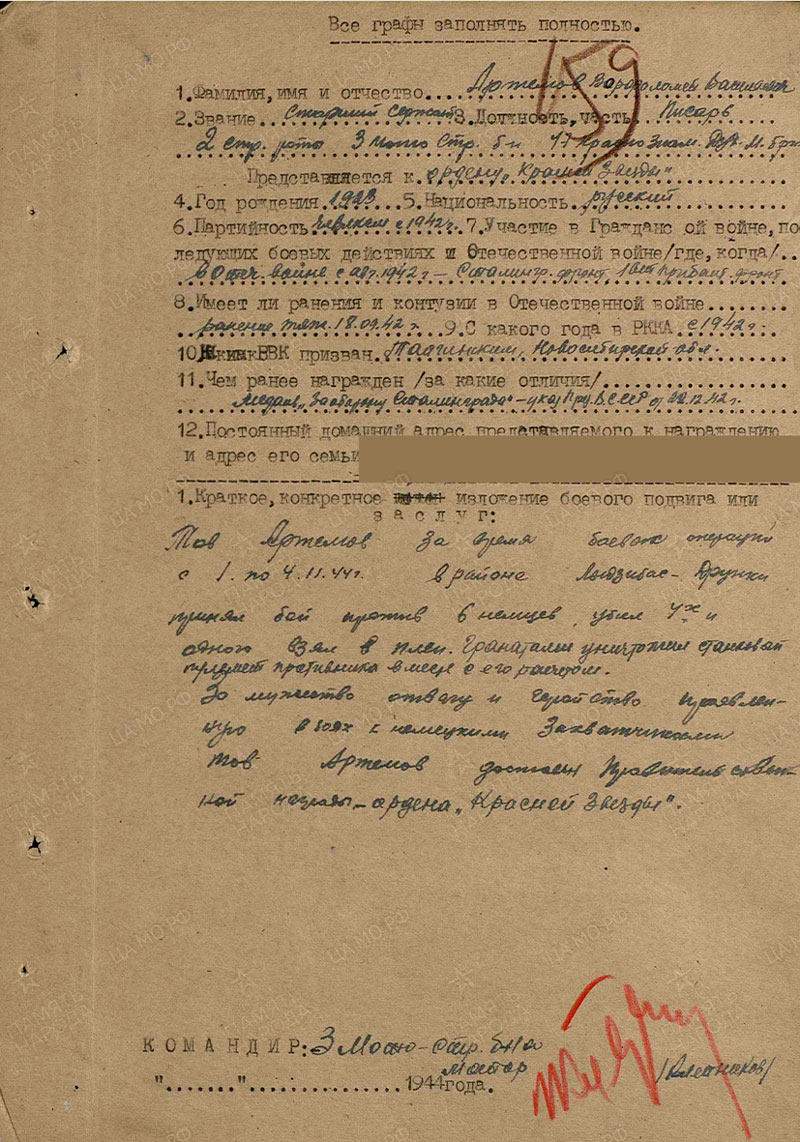 Все графы заполнять полностью.
159
1.Фамилия,имя и отчество... Артемов Варфоломей Васильевич
2.Звание.. Старший Сержант 3.Должность,часть. Писарь
2 стр. роты 3 мото Стр. б-н 17 Краснознам. М. Бриг
Представляется к. ордену „Красной Звезды"
4.Год рождения.1923 5.Национальность. русский
6.Партийность. ЧлВЛКСМ с 1942г. 7.Участие в Гражданс ой войне, по
ледующих боевых действиях и Отечественной войне/где, когда/..
в Отеч. войне с 1942 г – Сталингр. фронт, 1вый Прибалт. фронт
8.Имеет ли ранения и контузии в Отечественной войне........
ранение тяж. 18.09.42 г. 9.С какого года в РККА. с 1942г.
10. ВВК призван. Новосибирской обл.
11.Чем ранее награжден /за какие отличия/...........
Медаль „За оборону Сталинграда" – указ През. В.С.СССР от 22.12.42 г.
12.Постоянный домашний адрес представляемого к награждению
и адрес его семьи
1.Краткое,конкретное изложение боевого подвига или
заслуг:
Тов Артемов За время боевых операций
с 1. по 4.11.44г. в районе
принял бой против 6 немцев, убил 4х и
одного взял в плен. Гранатами уничтожил станковый
пулемет противника вместе с его расчетом.
За мужество отвагу и Геройство проявлен-
ную в боях с немецкими Захватчиками
тов Артемов достоен Правительствен-
ной награды – ордена „Красной Звезды".
КОМАНДИР: 3 Мото-стр. б-на
майор
"......."..............1944года.